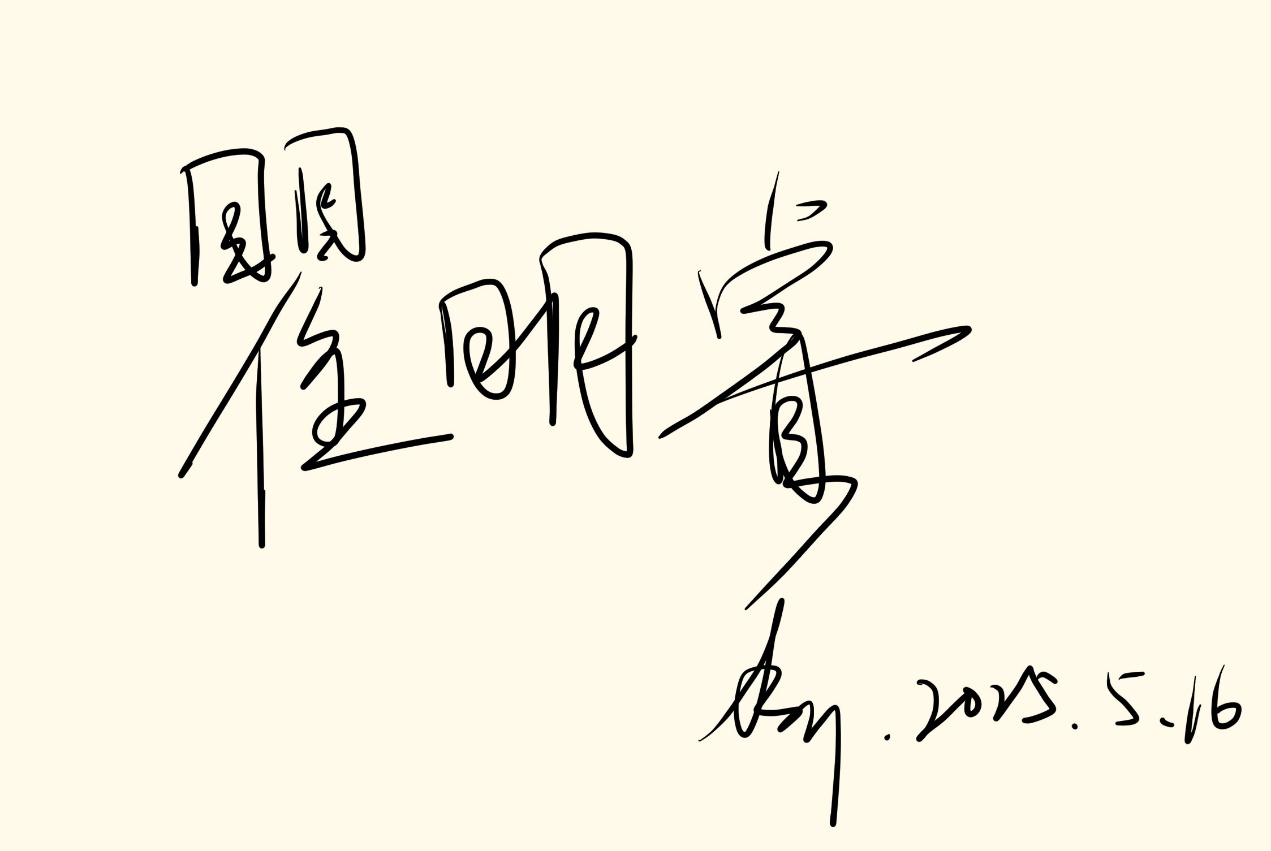 瞿明睿
2025.5.16